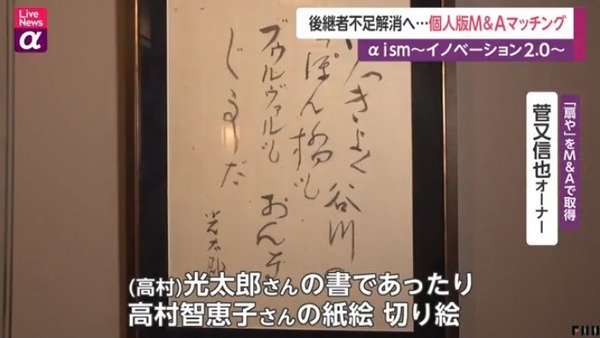 Live
News
α
後継者不足解消へ…個人版M&Aマッチング
αism～イノベーション2.0～
「扇や」をM&Aで取得
菅又信也オーナー
つきよく谷川
ぽん橋も
ブウルヴァルも おんな
光太郎
(高村)光太郎さんの書であったり
高村智恵子さんの紙絵 切り絵